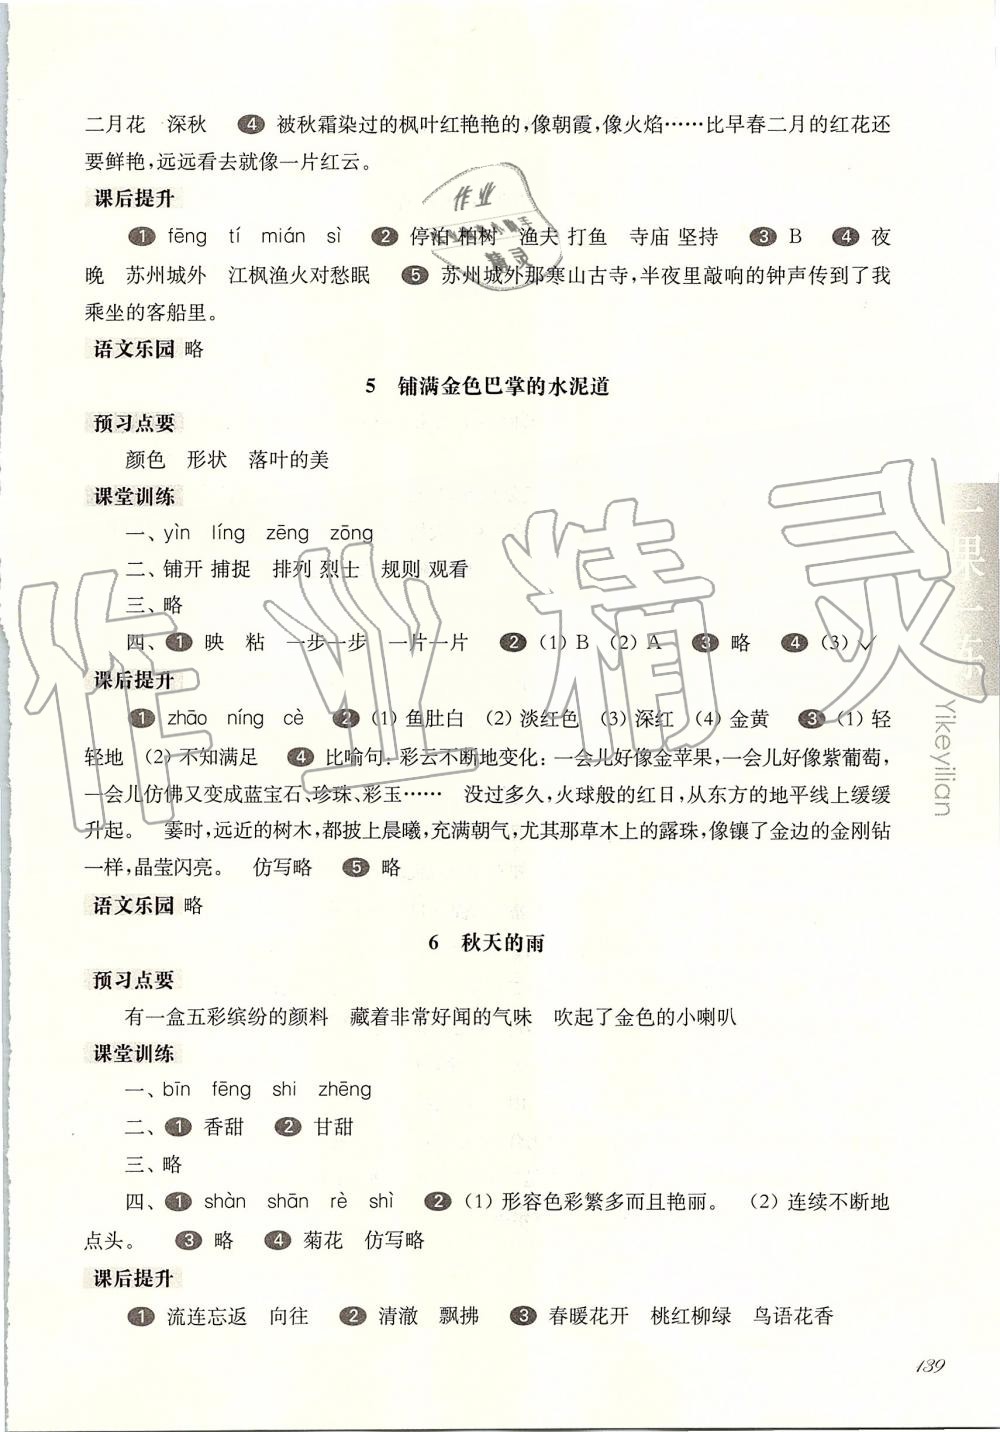 二月花　深秋　4 被秋霜染过的枫叶红艳艳的,像朝霞,像火焰……比早春二月的红花还
要鲜艳,远远看去就像一片红云。
课后提升
1 fēng　tí　mián　sì　2 停泊 柏树　渔夫 打鱼　寺庙 坚持　3 B　4 夜
晚　苏州城外　江枫渔火对愁眠　5 苏州城外那寒山古寺,半夜里敲响的钟声传到了我
乘坐的客船里。
语文乐园 略
5　铺满金色巴掌的水泥道
预习点要
颜色　形状　落叶的美
课堂训练
一、yìn　líng　zēng　zōng
二、铺开 捕捉　排列 烈士　规则 观看
三、略
四、1 映　粘　一步一步　一片一片　2 (1) B　(2) A　3 略　4 (3) ✓
课后提升
1 zhāo　níng　cè　2 (1) 鱼肚白　(2) 淡红色　(3) 深红　(4) 金黄　3 (1) 轻
轻地　(2) 不知满足　4 比喻句:彩云不断地变化:一会儿好像金苹果,一会儿好像紫葡萄,
一会儿仿佛又变成蓝宝石、珍珠、彩玉……　没过多久,火球般的红日,从东方的地平线上缓缓
升起。　霎时,远近的树木,都披上晨曦,充满朝气,尤其那草木上的露珠,像镶了金边的金刚钻
一样,晶莹闪亮。　仿写略　5 略
语文乐园 略
6　秋天的雨
预习点要
有一盒五彩缤纷的颜料　藏着非常好闻的气味　吹起了金色的小喇叭
课堂训练
一、bīn　fēng　shi　zhēng
二、1 香甜　2 甘甜
三、略
四、1 shàn　shān　rè　shì　2 (1) 形容色彩繁多而且艳丽。　(2) 连续不断地
点头。　3 略　4 菊花　仿写略
课后提升
1 流连忘返　向往　2 清澈　飘拂　3 春暖花开　桃红柳绿　鸟语花香
139
一课一练
Yikeyilian
作业精灵
作业
精灵